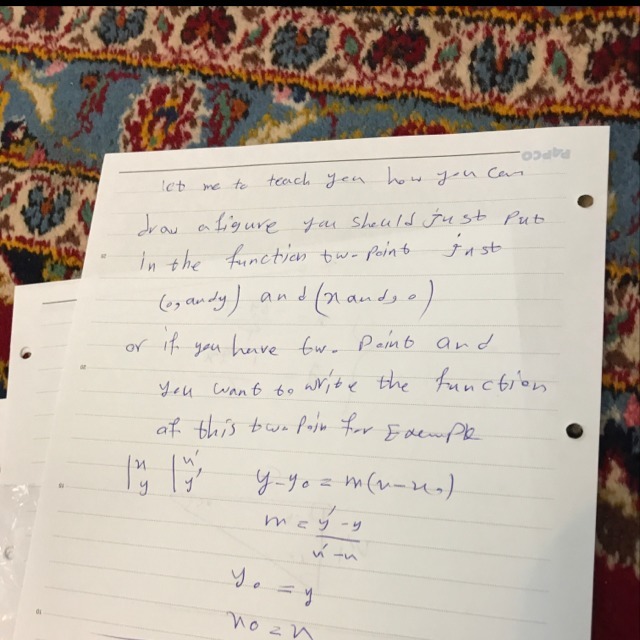 PAPCO
let me to teach you how you can
draw a figure you should just put
in the function two point just
(0, and y) and (x and, 0)
or if you have two point and
you want to write the function
of this two poin for Exemple
|x y |x' y' y-y0 = m(x-x0)
m = y'-y / x'-x
y0 = y
x0 = x